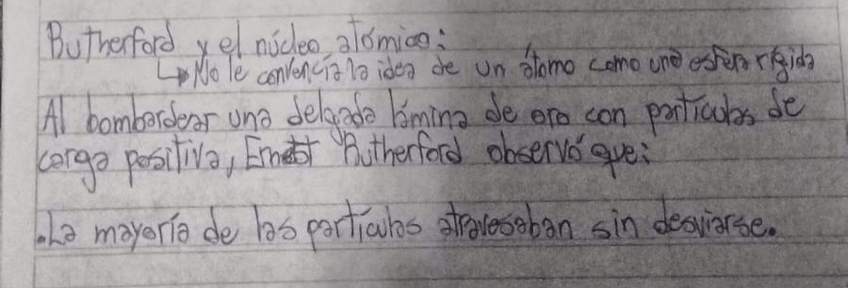 Rutherford y el núcleo atómico:
↳No le convencía la idea de un átomo como una esfera rígida
Al bombardear una delgada lámina de oro con partículas de
carga positiva, Ernest Rutherford observó que:
.La mayoría de las partículas atravesaban sin desviarse.